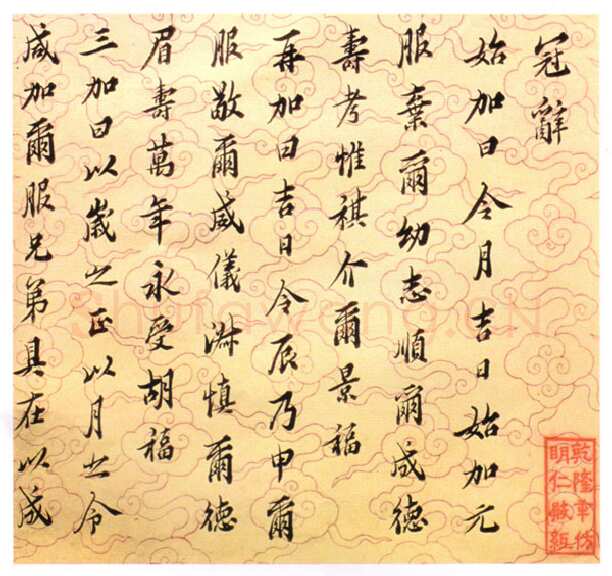 冠辭
始加曰令月吉日始加元
服棄爾幼志順爾成德
壽考惟祺介爾景福
再加曰吉日令辰乃申爾
服敬爾威儀淑慎爾德
眉壽萬年永受胡福
三加曰以歲之正以月之令
咸加爾服兄弟具在以成
乾隆年仿
明仁殿紙
Shufawang.CN